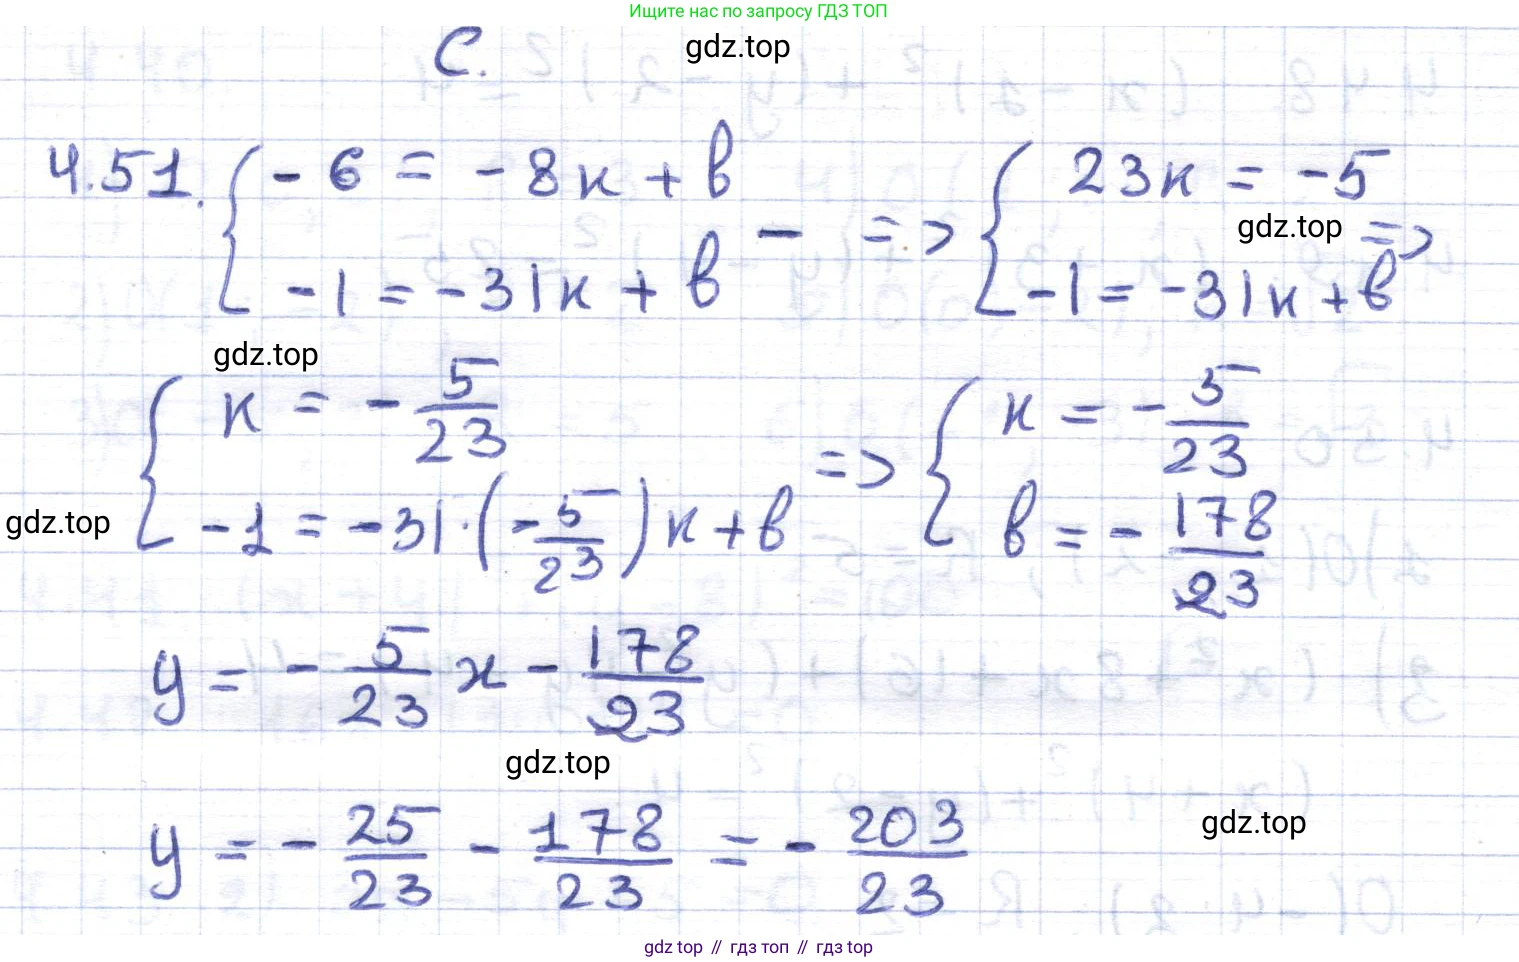 Ищите нас по запросу ГДЗ ТОП
С.
gdz.top
4.51. { -6 = -8к + в
-1 = -31к + в - => { 23к = -5
-1 = -31к + в =>
gdz.top
gdz.top
{ к = - 5/23
-1 = -31·(-5/23)к + в => { к = - 5/23
в = - 178/23
gdz.top
y = - 5/23 x - 178/23
gdz.top
y = - 25/23 - 178/23 = - 203/23
gdz.top
gdz top // гдз топ // гдз top